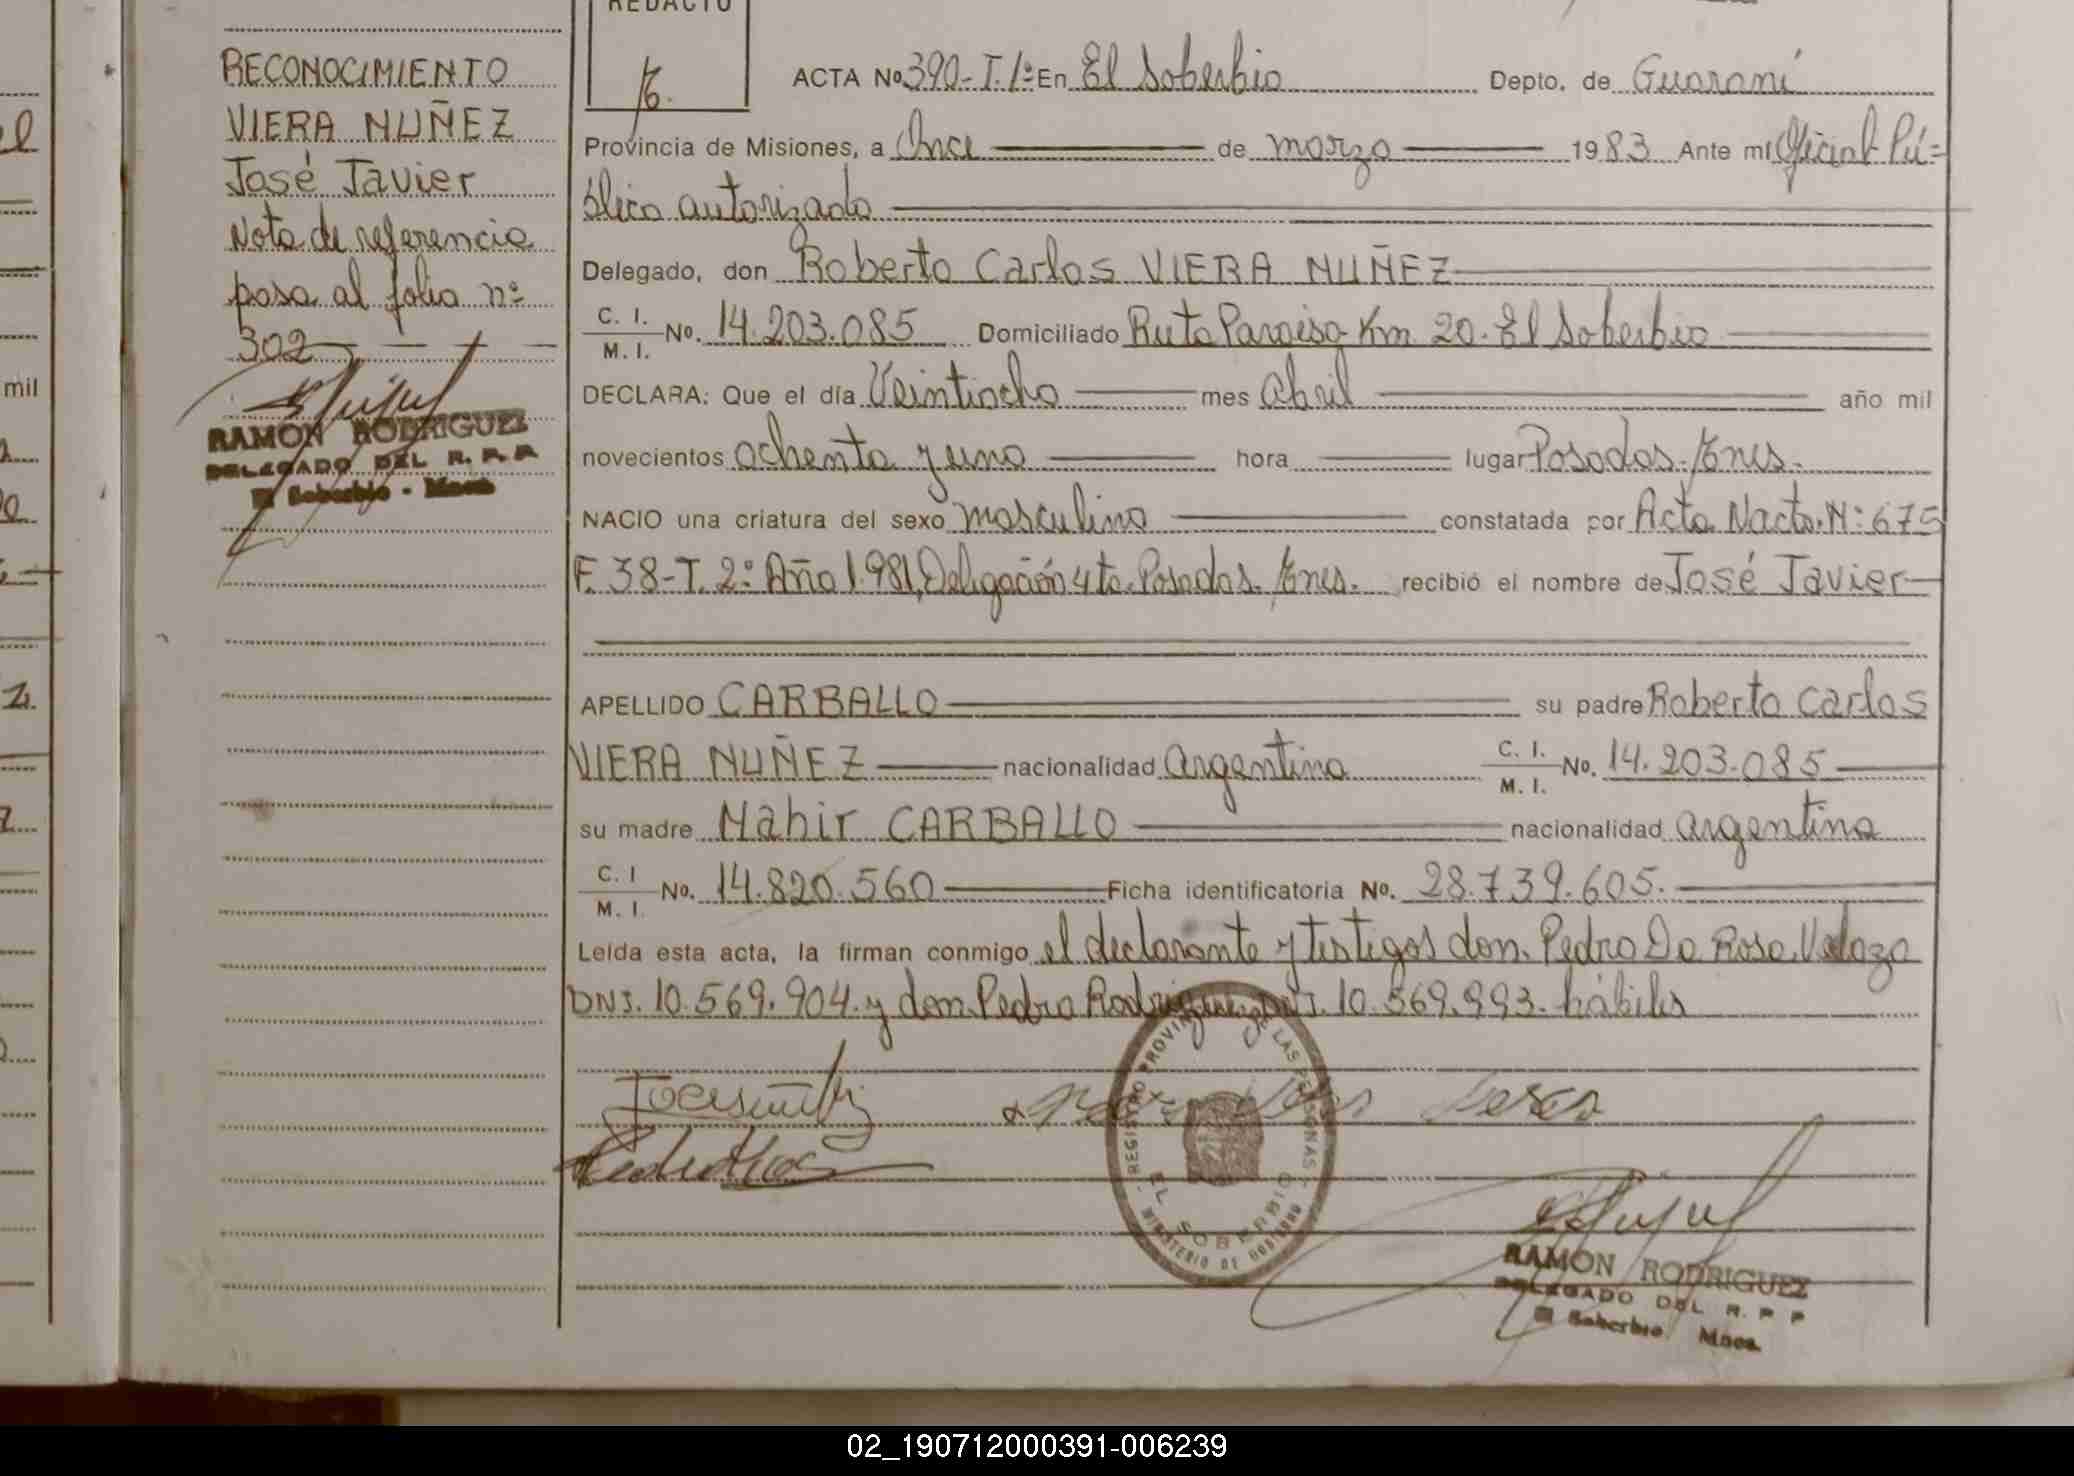 REDACTO
RECONOCIMIENTO
VIERA NUÑEZ
José Javier
Nota de referencia
pasa al folio nº
302
RAMON RODRIGUEZ
DELEGADO DEL R. P. P
El Soberbio - Mnes
ACTA No 390-T.1º En El Soberbio Depto. de Guaraní
Provincia de Misiones, a Once de marzo 1983 Ante mi Oficial Pú=
blico autorizado
Delegado, don Roberto Carlos VIERA NUÑEZ
C. I.
M. I. No. 14.203.085 Domiciliado Ruta Paraiso Km 20. El Soberbio
DECLARA: Que el día Veintiocho mes Abril año mil
novecientos ochenta y uno hora lugar Posadas. Mnes.
NACIO una criatura del sexo masculino constatada por Acta Nacto. Nº 675
F. 38-T. 2º Año 1.981, Delegación 4ta. Posadas. Mnes. recibió el nombre de José Javier
APELLIDO CARBALLO su padre Roberto Carlos
VIERA NUÑEZ nacionalidad Argentina C. I.
M. I. No. 14.203.085
su madre Nahir CARBALLO nacionalidad argentina
C. I
M. I. No. 14.820.560 Ficha identificatoria No. 28.739.605.
Leída esta acta, la firman conmigo el declarante y testigos don. Pedro Da Rosa
DNI. 10.569.904. y don Pedro Rodriguez DNI. 10.569.993. hábiles
REGISTRO PROVINCIAL DE LAS PERSONAS
EL SOBERBIO
MINISTERIO DE GOBIERNO
RAMON RODRIGUEZ
DELEGADO DEL R. P P
El Soberbio Mnes.
mil
02_190712000391-006239